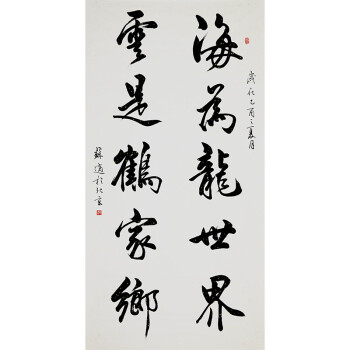 歲次乙酉之夏月
海為龍世界
雲是鶴家鄉
蘇適於北京